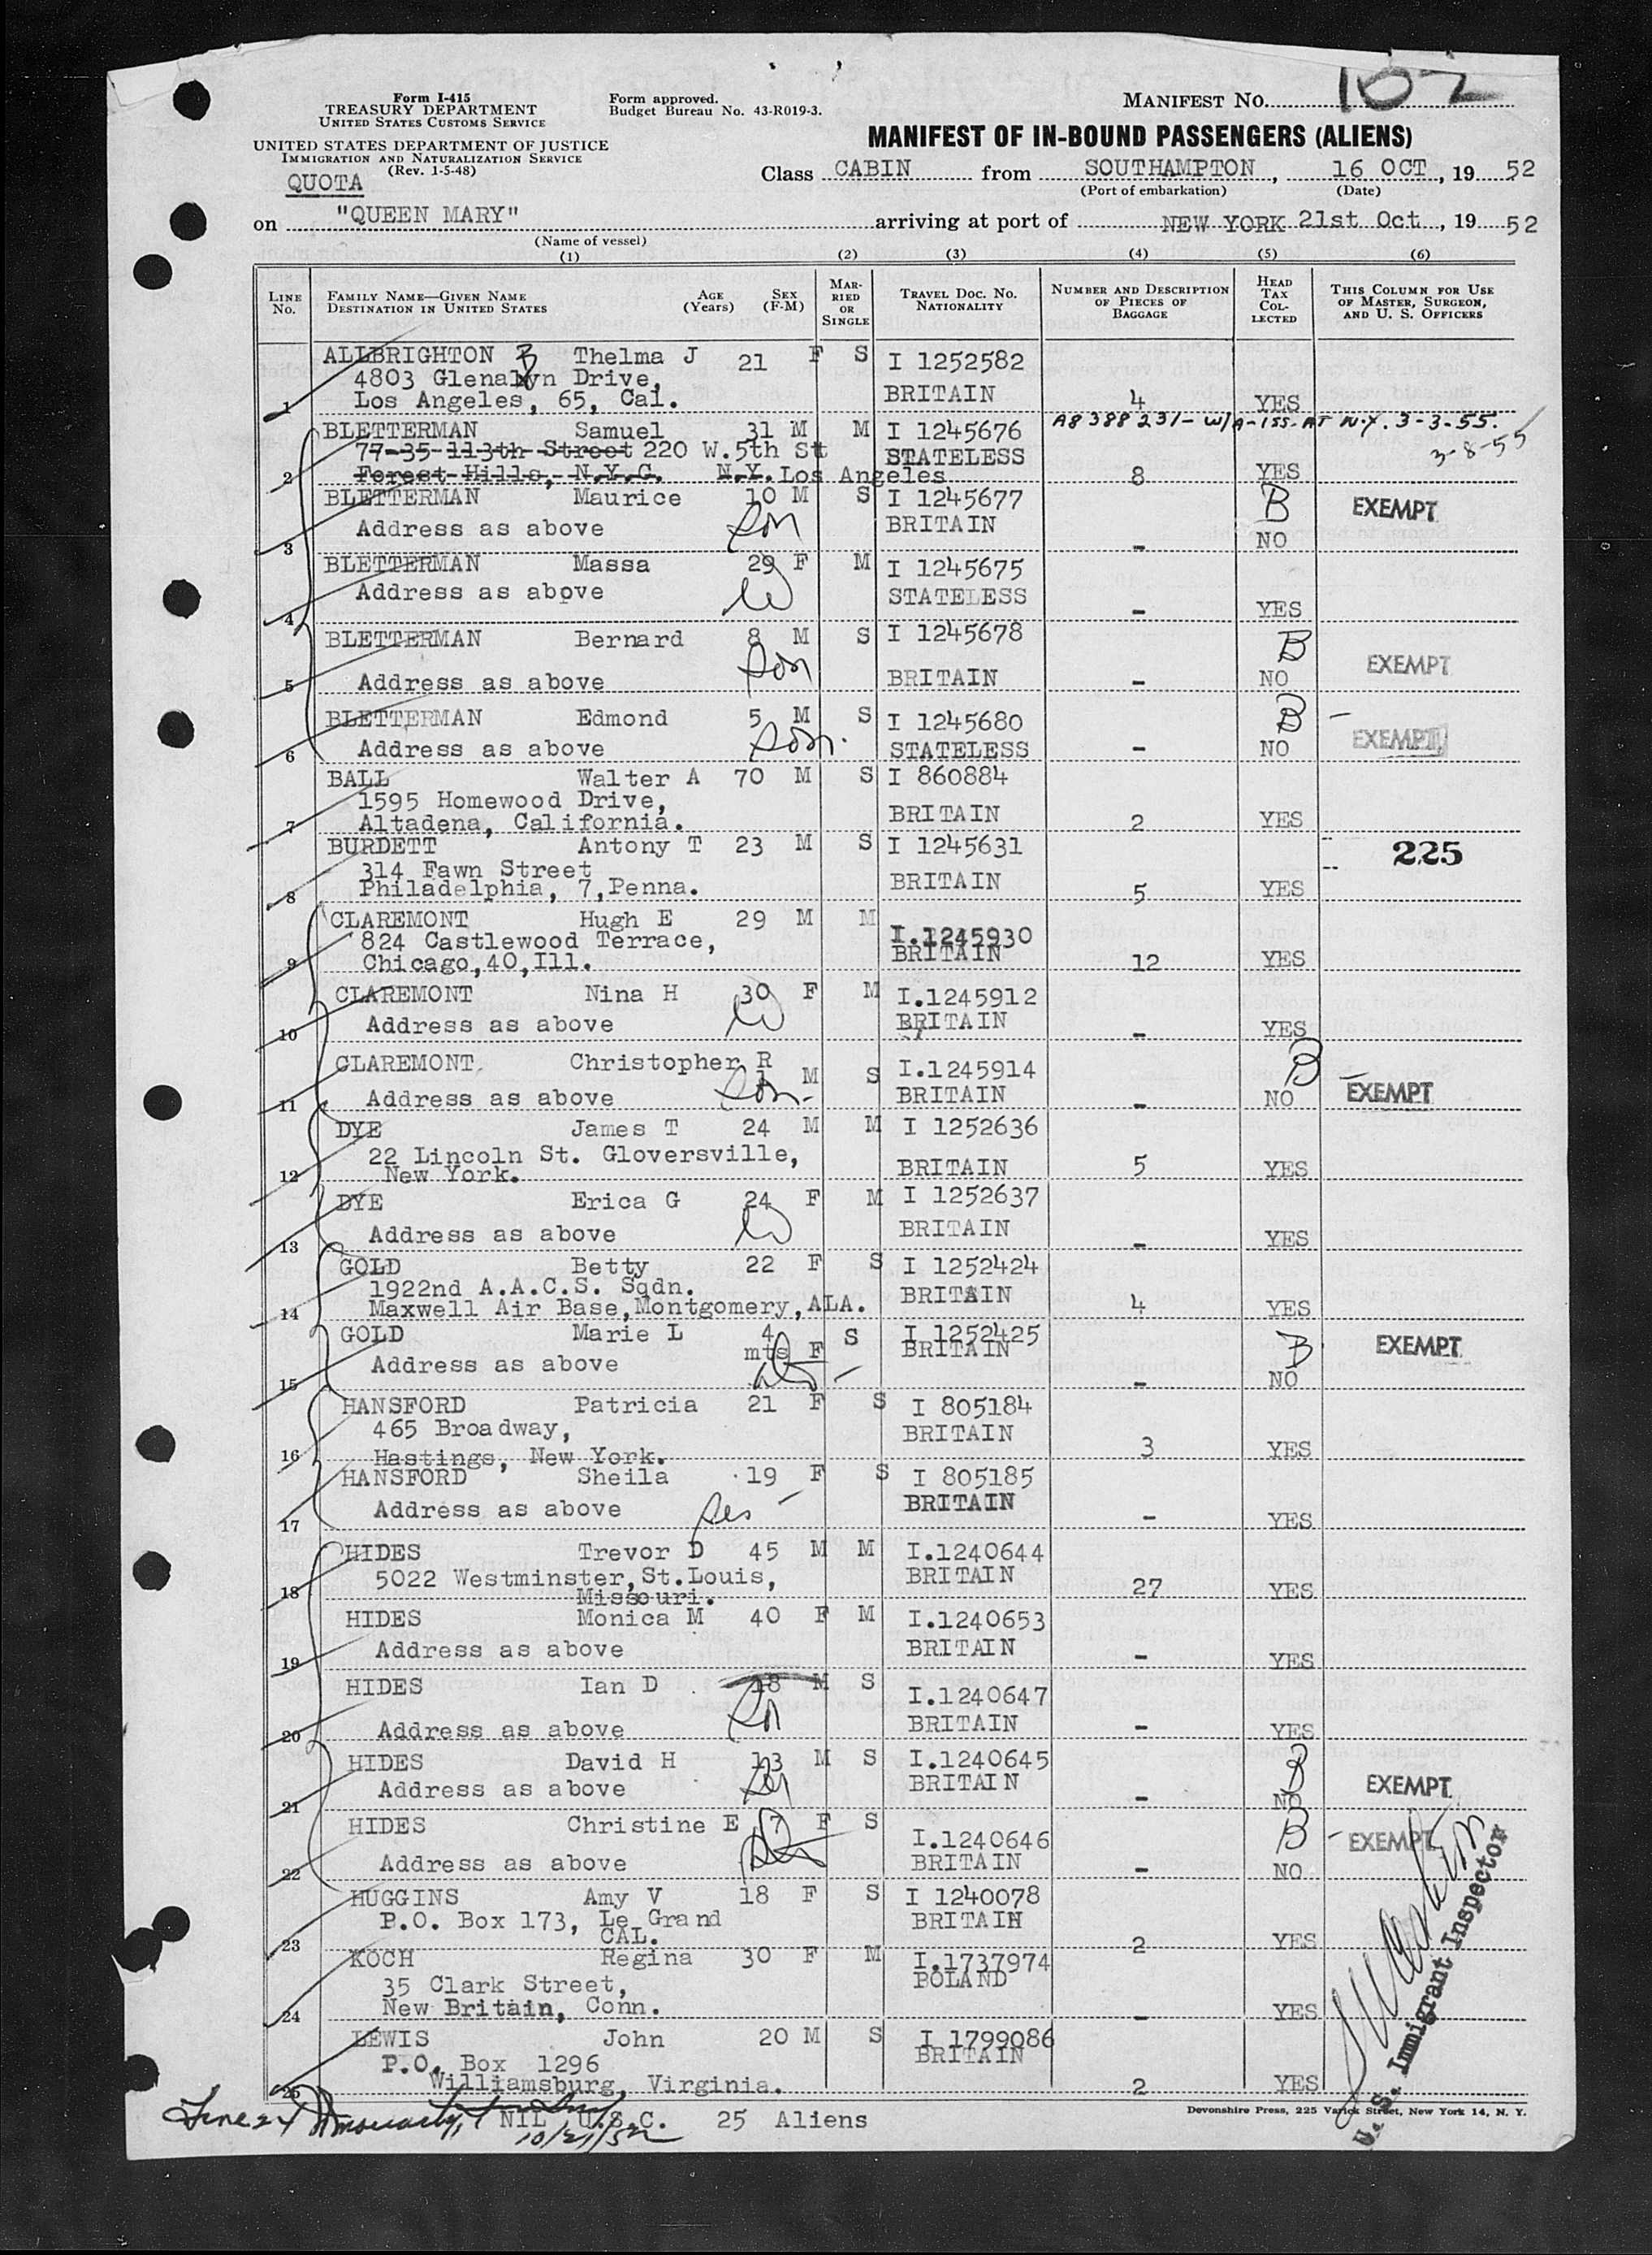 Form I-415
TREASURY DEPARTMENT
UNITED STATES CUSTOMS SERVICE
UNITED STATES DEPARTMENT OF JUSTICE
IMMIGRATION AND NATURALIZATION SERVICE
(Rev. 1-5-48)
QUOTA
Form approved.
Budget Bureau No. 43-R019-3.
MANIFEST NO.
MANIFEST OF IN-BOUND PASSENGERS (ALIENS)
Class CABIN from SOUTHAMPTON, 16 OCT, 19 52
(Port of embarkation) (Date)
on "QUEEN MARY" arriving at port of NEW YORK 21st Oct, 19 52
(Name of vessel)
(1) (2) (3) (4) (5) (6)
LINE NO. FAMILY NAME—GIVEN NAME DESTINATION IN UNITED STATES AGE (Years) SEX (F-M) MARRIED OR SINGLE TRAVEL DOC. NO. NATIONALITY NUMBER AND DESCRIPTION OF PIECES OF BAGGAGE HEAD TAX COLLECTED THIS COLUMN FOR USE OF MASTER, SURGEON, AND U. S. OFFICERS
ALLBRIGHTON B Thelma J 21 F S I 1252582
4803 Glenalyn Drive,
1 Los Angeles, 65, Cal. BRITAIN 4 YES
A8388231- W/A-155-AT N.Y. 3-3-55.
3-8-55
BLETTERMAN Samuel 31 M M I 1245676
77-35-113th Street 220 W.5th St STATELESS
2 Forest Hills, N.Y.C. N.Y. Los Angeles 8 YES
BLETTERMAN Maurice 10 M S I 1245677 B EXEMPT
3 Address as above son BRITAIN - NO
BLETTERMAN Massa 29 F M I 1245675
4 Address as above W STATELESS - YES
BLETTERMAN Bernard 8 M S I 1245678 B EXEMPT
5 Address as above son BRITAIN - NO
BLETTERMAN Edmond 5 M S I 1245680 B - EXEMPT
6 Address as above son. STATELESS - NO
BALL Walter A 70 M S I 860884
1595 Homewood Drive,
7 Altadena, California. BRITAIN 2 YES
BURDETT Antony T 23 M S I 1245631 225
314 Fawn Street
8 Philadelphia, 7, Penna. BRITAIN 5 YES
CLAREMONT Hugh E 29 M M I.1245930
824 Castlewood Terrace, BRITAIN
9 Chicago,40,Ill. 12 YES
CLAREMONT Nina H 30 F M I.1245912
10 Address as above W BRITAIN - YES
CLAREMONT. Christopher R 1 M S I.1245914 B
11 Address as above son- BRITAIN - NO EXEMPT
DYE James T 24 M M I 1252636
22 Lincoln St. Gloversville,
12 New York. BRITAIN 5 YES
DYE Erica G 24 F M I 1252637
13 Address as above W BRITAIN - YES
GOLD Betty 22 F S I 1252424
1922nd A.A.C.S. Sqdn. BRITAIN
14 Maxwell Air Base,Montgomery,ALA. 4 YES
GOLD Marie L 4 mts F S I 1252425 B EXEMPT
15 Address as above BRITAIN - NO
HANSFORD Patricia 21 F S I 805184
465 Broadway, BRITAIN
16 Hastings, New York. 3 YES
HANSFORD Sheila 19 F S I 805185
17 Address as above BRITAIN - YES
HIDES Trevor D 45 M M I.1240644
5022 Westminster,St.Louis, BRITAIN
18 Missouri. 27 YES
HIDES Monica M 40 F M I.1240653
19 Address as above BRITAIN - YES
HIDES Ian D 18 M S I.1240647
20 Address as above BRITAIN - YES
HIDES David H 13 M S I.1240645 B
21 Address as above BRITAIN - NO EXEMPT
HIDES Christine E 7 F S I.1240646 B - EXEMPT
22 Address as above BRITAIN - NO
HUGGINS Amy V 18 F S I 1240078
P.O. Box 173, Le Grand BRITAIN
23 CAL. 2 YES
KOCH Regina 30 F M I.1737974
35 Clark Street, POLAND
24 New Britain, Conn. - YES
LEWIS John 20 M S I 1799086
P.O. Box 1296 BRITAIN
25 Williamsburg, Virginia. 2 YES
U. S. Immigrant Inspector
Line 24
NIL U.S.C. 25 Aliens
10/21/52
Devonshire Press, 225 Varick Street, New York 14, N. Y.